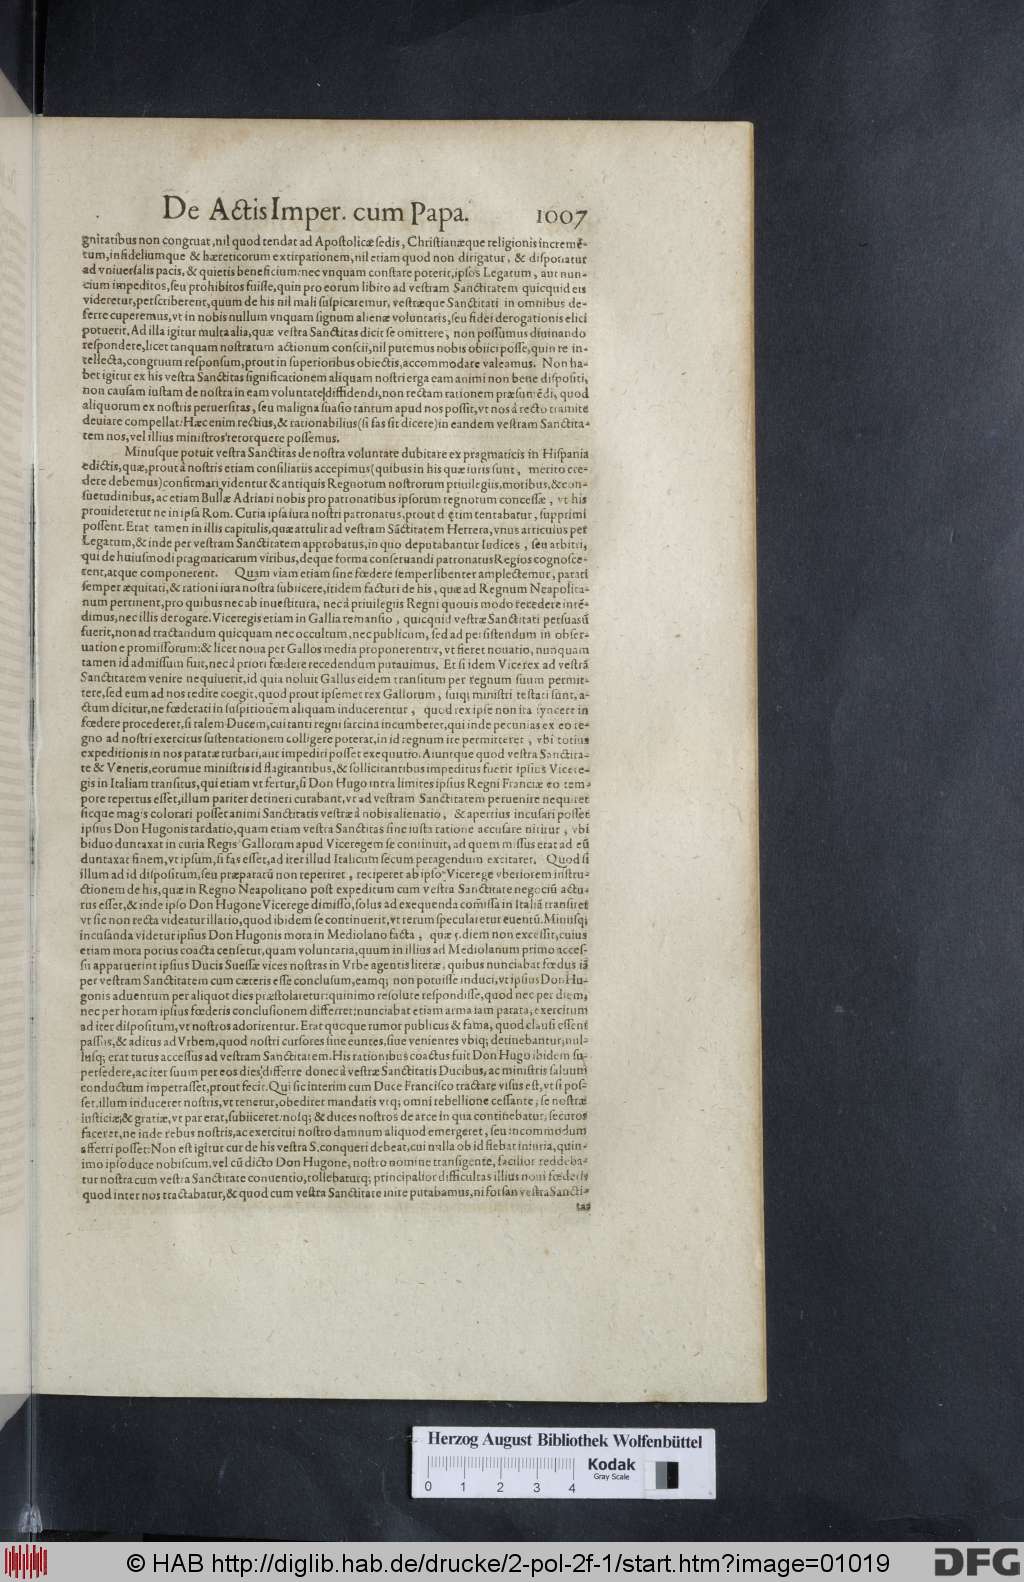 De Actis Imper. cum Papa. 1007
gnitatibus non congruat, nil quod tendat ad Apostolicæ sedis, Christianæque religionis incremē-
tum, infideliumque & hæreticorum extirpationem, nil etiam quod non dirigatur, & disponatur
ad vniuersalis pacis, & quietis beneficium: nec vnquam constare poterit, ipsos Legatum, aut nun-
cium impeditos, seu prohibitos fuisse, quin pro eorum libito ad vestram Sanctitatem quicquid eis
videretur, perscriberent, quum de his nil mali suspicaremur, vestræque Sanctitati in omnibus de-
ferre cuperemus, vt in nobis nullum vnquam signum alienæ voluntatis, seu fidei derogationis elici
potuerit. Ad illa igitur multa alia, quæ vestra Sanctitas dicit se omittere, non possumus diuinando
respondere, licet tanquam nostrarum actionum conscii, nil putemus nobis obiici posse, quin re in-
tellecta, congruum responsum, prout in superioribus obiectis, accommodare valeamus. Non ha-
bet igitur ex his vestra Sanctitas significationem aliquam nostri erga eam animi non bene dispositi,
non causam iustam de nostra in eam voluntate diffidendi, non rectam rationem præsumēdi, quod
aliquorum ex nostris peruersitas, seu maligna suasio tantum apud nos possit, vt nos à recto tramite
deuiare compellat: Hæc enim rectius, & rationabilius (si fas sit dicere) in eandem vestram Sanctita-
tem nos, vel illius ministros retorquere possemus.
Minusque potuit vestra Sanctitas de nostra voluntate dubitare ex pragmaticis in Hispania
edictis, quæ, prout à nostris etiam consiliariis accepimus (quibus in his quæ iuris sunt, merito cre-
dere debemus) confirmari videntur & antiquis Regnorum nostrorum priuilegiis, moribus, & con-
suetudinibus, ac etiam Bullæ Adriani nobis pro patronatibus ipsorum regnorum concessæ, vt his
prouideretur ne in ipsa Rom. Curia ipsa iura nostri patronatus, prout d etim tentabatur, supprimi
possent. Erat tamen in illis capitulis, quæ attulit ad vestram Sāctitatem Herrera, vnus articulus per
Legatum, & inde per vestram Sanctitatem approbatus, in quo deputabantur Iudices, seu arbitri,
qui de huiusmodi pragmaticarum viribus, deque forma conseruandi patronatus Regios cognosce-
rent, atque componerent. Quam viam etiam sine fœdere semper libenter amplectemur, parati
semper æquitati, & rationi iura nostra subiicere, itidem facturi de his, quæ ad Regnum Neapolita-
num pertinent, pro quibus nec ab inuestitura, nec à priuilegiis Regni quouis modo recedere intē-
dimus, nec illis derogare. Viceregis etiam in Gallia remansio, quicquid vestræ Sanctitati persuasū
fuerit, non ad tractandum quicquam nec occultum, nec publicum, sed ad persistendum in obser-
uatione promissorum: & licet noua per Gallos media proponerentur, vt fieret nouatio, nunquam
tamen id admissum fuit, nec à priori fœdere recedendum putauimus. Et si idem Vicerex ad vestrā
Sanctitatem venire nequiuerit, id quia noluit Gallus eidem transitum per regnum suum permit-
tere, sed eum ad nos redire coegit, quod prout ipsemet rex Gallorum, suiq; ministri testati sunt, a-
ctum dicitur, ne fœderati in suspitionem aliquam inducerentur, quod rex ipse non ita syncere in
fœdere procederet, si talem Ducem, cui tanti regni sarcina incumberet, qui inde pecunias ex eo re-
gno ad nostri exercitus sustentationem colligere poterat, in id regnum ire permitteret, vbi totius
expeditionis in nos paratæ turbari, aut impediri posset exequutio. Aiuntque quod vestra Sanctita-
te & Venetis, eorumue ministris id flagitantibus, & sollicitantibus impeditus fuerit ipsius Vicere-
gis in Italiam transitus, qui etiam vt fertur, si Don Hugo intra limites ipsius Regni Franciæ eo tem-
pore repertus esset, illum pariter detineri curabant, vt ad vestram Sanctitatem peruenire nequiret
sicque magis colorari posset animi Sanctitatis vestræ à nobis alienatio, & apertius incusari posset
ipsius Don Hugonis tardatio, quam etiam vestra Sanctitas sine iusta ratione accusare nititur, vbi
biduo duntaxat in curia Regis Gallorum apud Viceregem se continuit, ad quem missus erat ad eū
duntaxat finem, vt ipsum, si fas esset, ad iter illud Italicum secum peragendum excitaret. Quod si
illum ad id dispositum, seu præparatū non reperiret, reciperet ab ipso Vicerege vberiorem instru-
ctionem de his, quæ in Regno Neapolitano post expeditum cum vestra Sanctitate negociū actu-
rus esset, & inde ipso Don Hugone Vicerege dimisso, solus ad exequenda cōmissa in Italiā transiret
vt sic non recta videatur illatio, quod ibidem se continuerit, vt rerum specularetur euentū. Minusq;
incusanda videtur ipsius Don Hugonis mora in Mediolano facta, quæ 5. diem non excessit, cuius
etiam mora potius coacta censetur, quam voluntaria, quum in illius ad Mediolanum primo acces-
su apparuerint ipsius Ducis Suessæ vices nostras in Vrbe agentis literæ, quibus nunciabat fœdus iā
per vestram Sanctitatem cum cæteris esse conclusum, eamq; non potuisse induci, vt ipsius Don Hu-
gonis aduentum per aliquot dies præstolaretur: quinimo resolute respondisse, quod nec per diem,
nec per horam ipsius fœderis conclusionem differret: nunciabat etiam arma iam parata, exercitum
ad iter dispositum, vt nostros adorirentur. Erat quoque rumor publicus & fama, quod clausi essent
passus, & aditus ad Vrbem, quod nostri cursores siue euntes, siue venientes vbiq; detinebantur, nul-
lusq; erat tutus accessus ad vestram Sanctitatem. His rationibus coactus fuit Don Hugo ibidem su-
persedere, ac iter suum per eos dies differre donec à vestræ Sanctitatis Ducibus, ac ministris saluum
conductum impetrasset, prout fecit. Qui sic interim cum Duce Francisco tractare visus est, vt si pos-
set, illum induceret nostris, vt tenetur, obediret mandatis vtq; omni rebellione cessante, se nostræ
iusticiæ, & gratiæ, vt par erat, subiiceret, nosq; & duces nostros de arce in qua continebatur, securos
faceret, ne inde rebus nostris, ac exercitui nostro damnum aliquod emergeret, seu incommodum
afferri posset: Non est igitur cur de his vestra S. conqueri debeat, cui nulla ob id fiebat iniuria, quin-
imo ipso duce nobiscum, vel cū dicto Don Hugone, nostro nomine transigente, facilior reddeba-
tur nostra cum vestra Sanctitate conuentio, tollebaturq; principalior difficultas illius noui fœderis
quod inter nos tractabatur, & quod cum vestra Sanctitate inire putabamus, ni forsan vestra Sancti-
tas
Herzog August Bibliothek Wolfenbüttel
Kodak
Gray Scale
0 1 2 3 4
© HAB http://diglib.hab.de/drucke/2-pol-2f-1/start.htm?image=01019
DFG